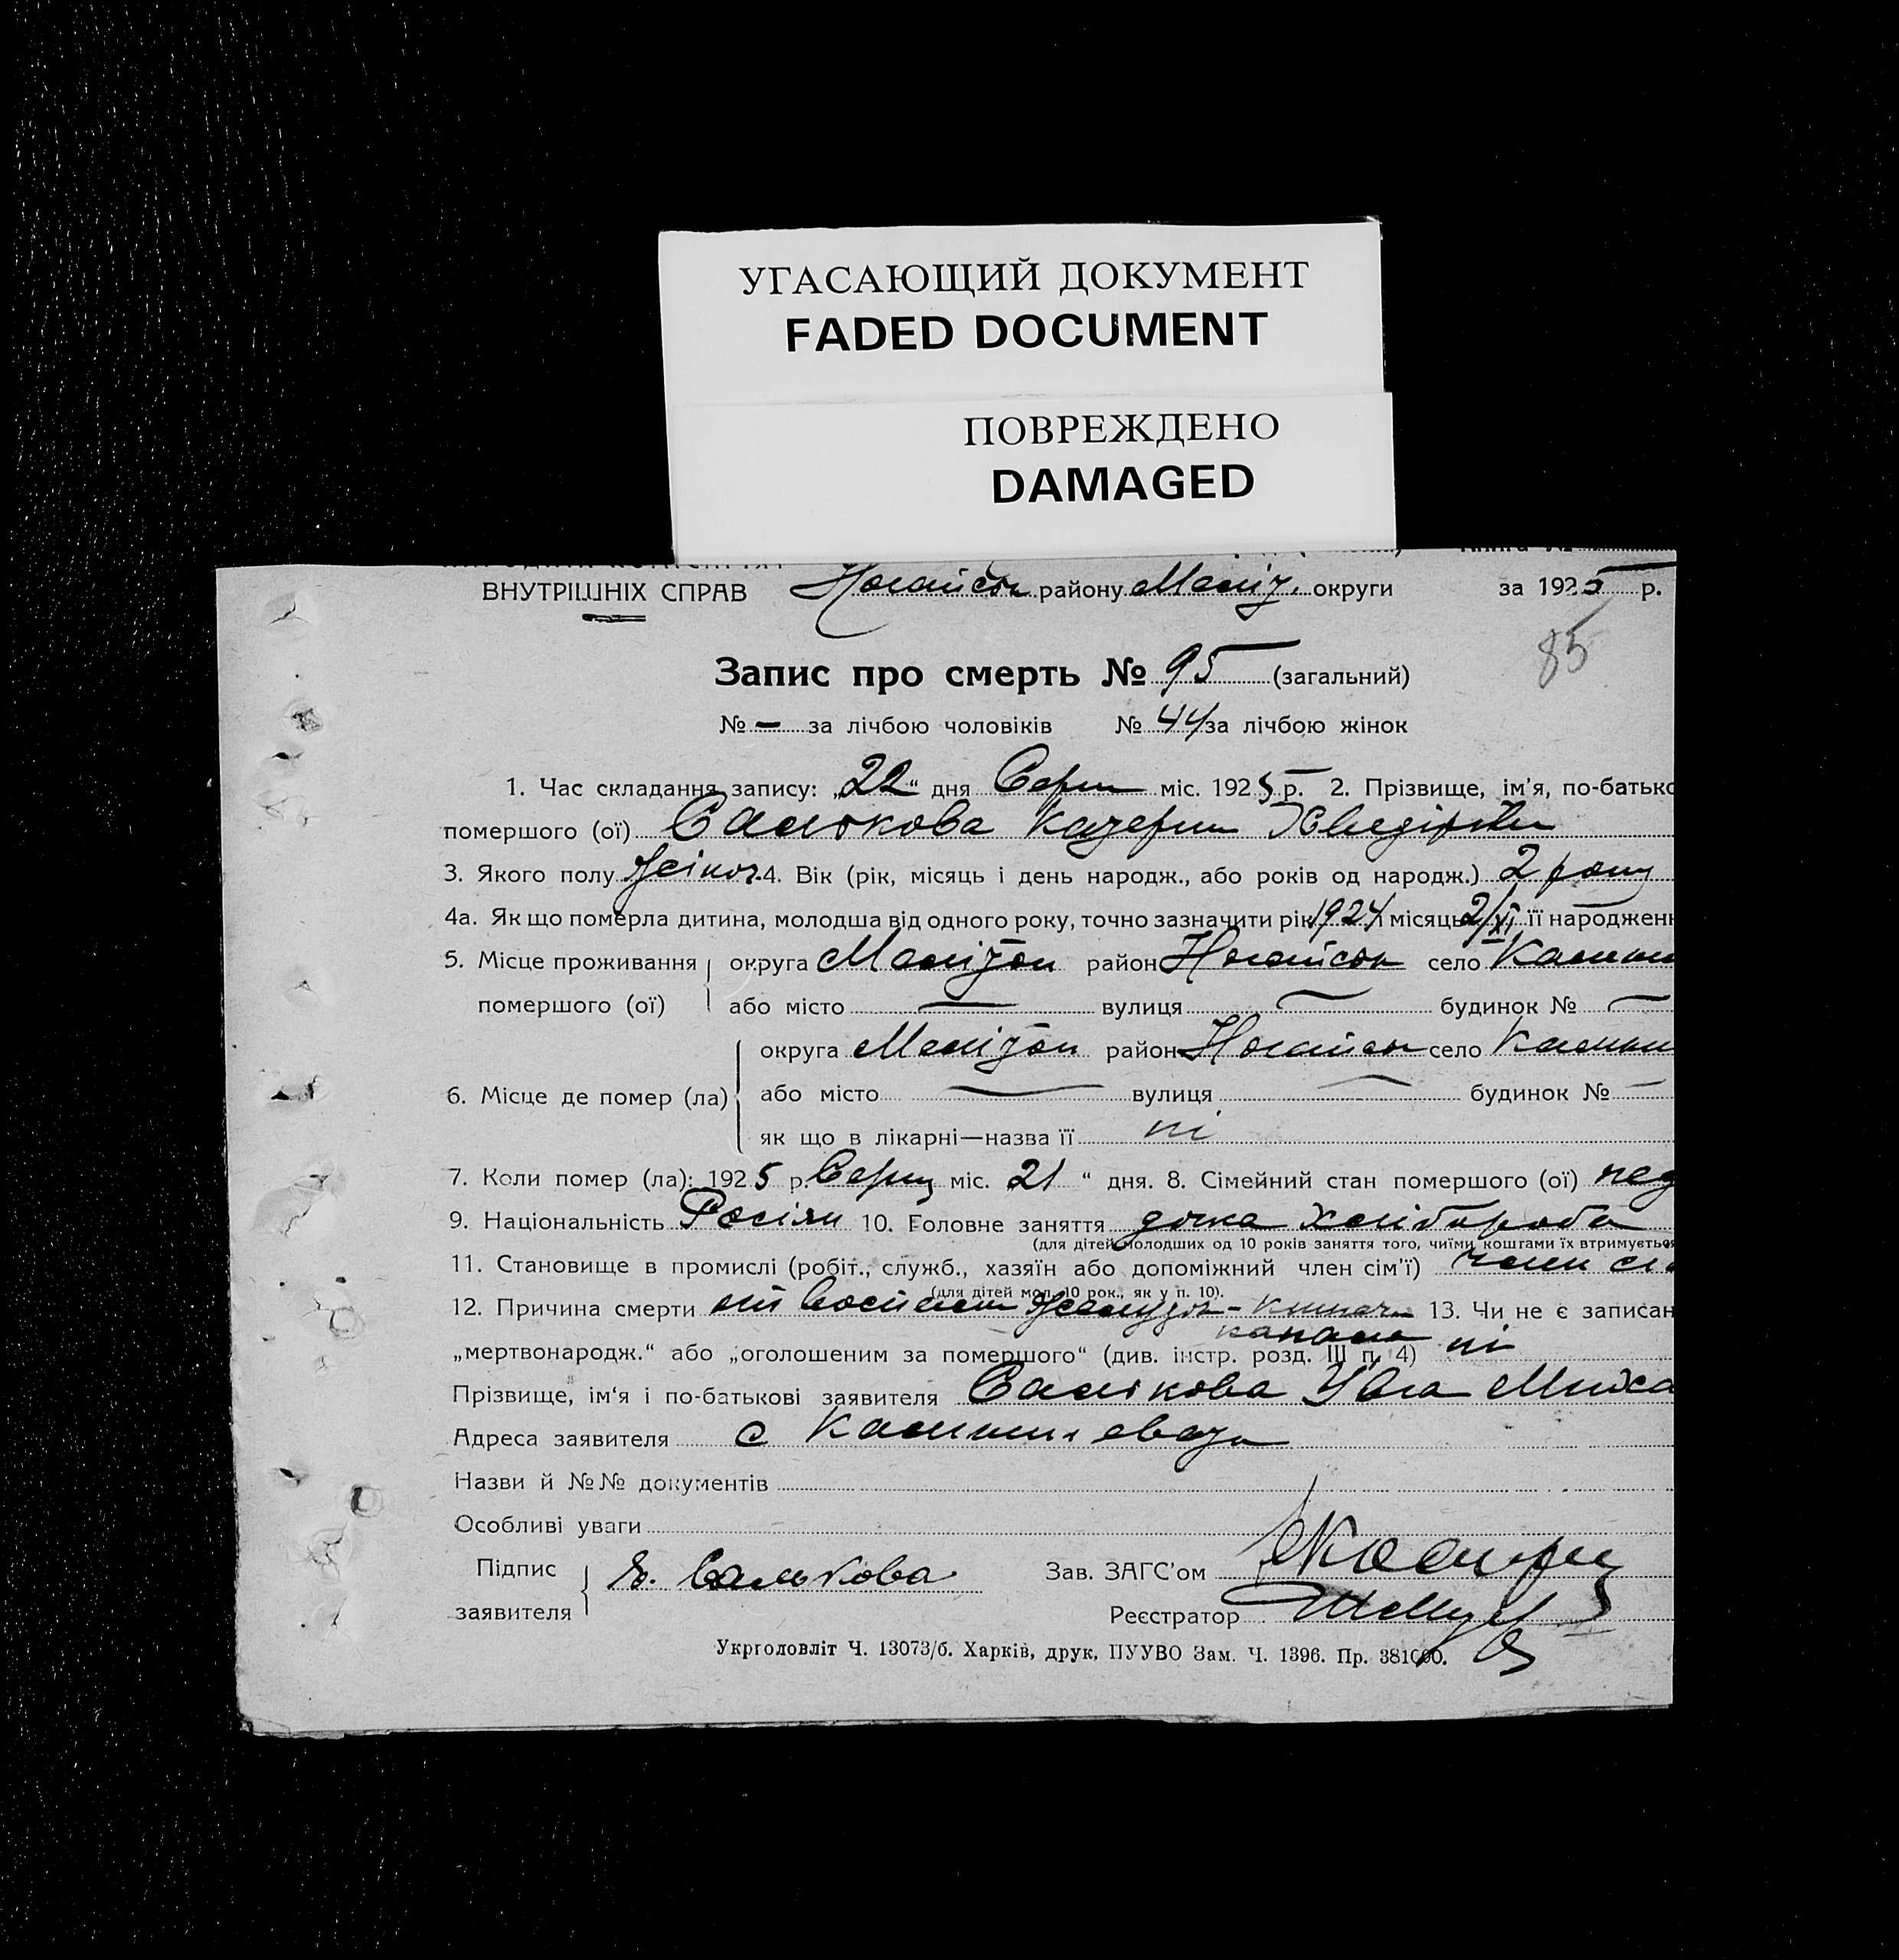 УГАСАЮЩИЙ ДОКУМЕНТ
FADED DOCUMENT
ПОВРЕЖДЕНО
DAMAGED
ВНУТРІШНІХ СПРАВ Ногайськ району Меліт. округи за 1925 р.
85
Запис про смерть № 95 (загальний)
№ — за лічбою чоловіків № 44 за лічбою жінок
1. Час складання запису: „22“ дня Серпн міс. 1925 р. 2. Прізвище, ім'я, по-батько
помершого (ої) Салькова Катерин
3. Якого полу жіноч. 4. Вік (рік, місяць і день народж., або років од народж.) 2 року
4а. Як що померла дитина, молодша від одного року, точно зазначити рік 1924 місяць 2/XI її народженн
5. Місце проживання округа Мелітоп район Ногайськ село
помершого (ої) або місто — вулиця — будинок № —
округа Мелітоп район Ногайськ село
6. Місце де помер (ла) або місто — вулиця — будинок № —
як що в лікарні—назва її ні
7. Коли помер (ла): 1925 р. Серпн міс. 21 “ дня. 8. Сімейний стан помершого (ої)
9. Національність Росіян 10. Головне заняття дочка хлібороба
(для дітей молодших од 10 років заняття того, чиїми коштами їх втримується
11. Становище в промислі (робіт., служб., хазяїн або допоміжний член сім'ї) член сі
(для дітей мол. 10 рок., як у п. 10).
12. Причина смерти 13. Чи не є записан
канала
„мертвонародж.“ або „оголошеним за помершого“ (див. інстр. розд. III п. 4) ні
Прізвище, ім'я і по-батькові заявителя Салькова
Адреса заявителя с
Назви й №№ документів
Особливі уваги
Підпис Салькова Зав. ЗАГС'ом
заявителя Реєстратор
Укрголовліт Ч. 13073/б. Харків, друк, ПУУВО Зам. Ч. 1396. Пр. 381000.